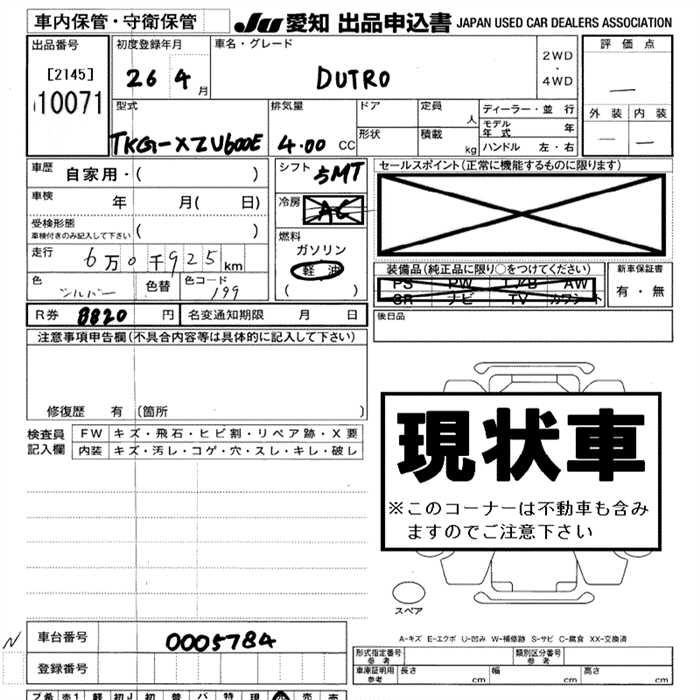 車内保管・守衛保管
JU 愛知 出品申込書 JAPAN USED CAR DEALERS ASSOCIATION
出品番号
[2145]
10071
初度登録年月
26 4 月
車名・グレード
DUTRO
2WD
・
4WD
評価点
—
外装 内装
— —
型式
TKG-XZU600E
排気量
4.00 CC
ドア
定員
人
形状
積載
kg
ディーラー・並 行
モデル年式 年
ハンドル 左・右
車歴 自家用・( )
車検 年 月( 日)
受検形態
車検付きのみ記入して下さい ( )
走行 6万0千925km
色 シルバー 色替 色コード 199
シフト 5MT
冷房 AC
燃料
ガソリン
軽油
( )
セールスポイント(正常に機能するものに限ります)
装備品(純正品に限り○をつけてください)
PS PW エアB AW
SR ナビ TV カワシート
新車保証書
有・無
後日品
R券 8820 円 名変通知期限 月 日
注意事項申告欄(不具合内容等は具体的に記入して下さい)
修復歴 有 (箇所 )
検査員
記入欄
FW キズ・飛石・ヒビ割・リペア跡・X要
内装 キズ・汚レ・コゲ・穴・スレ・キレ・破レ
現状車
※このコーナーは不動車も含み
ますのでご注意下さい
スペア
A-キズ E-エクボ U-凹み W-補修跡 S-サビ C-腐食 XX-交換済
N
車台番号 0005784
登録番号
形式指定番号
参考
類別区分番号
参考
車庫証明用
参考
長さ cm 幅 cm 高さ cm